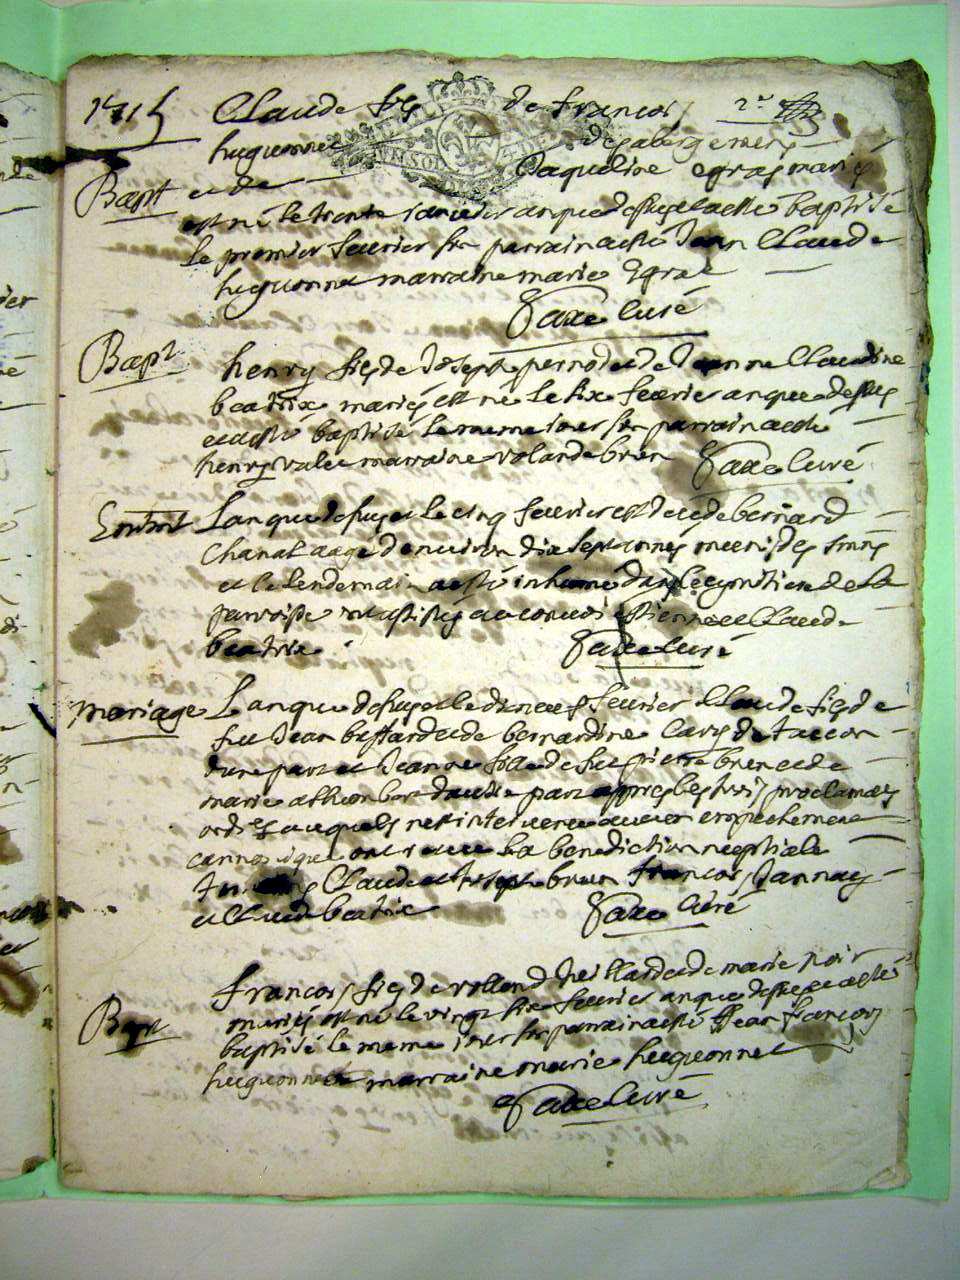 1715 Claude fils de francois 2e
huguonnet des abergemens
Bapt et de Jaqueline Egraz mariés
est né le trente Janvier an que dessus et a esté baptisé
le premier fevrier son parrain a esté Jean Claude
huguonnet marraine marie Egraz
faxe Curé
Bapt henry fils de Joseph pernod et de Jeanne Claudine
beatrix mariés est né le six fevrier an que dessus
et a esté baptisé le meme iour son parrain a esté
henry marraine yolande bren faxe Curé
L an que dessus et le cinq fevrier est decedé bernard
Chanal aagé d environ dix sept années muni des
et le lendemain a esté inhumé dans le cymetiere de la
parroisse ont assistés au convoi estienne et Claude
beatrix faxe Curé
mariage L an que dessus et le dixneuf fevrier Claude fils de
feu Jean et de bernardine
d une part et Jeanne fille de feu pierre bren et de
marie d autre part appres les trois proclamats
ordres auquels n est intervenu aucun empechement
cannonique ont receu la benediction nuptiale
Claude et Joseph bren francois Jannay
et Claude beatrix faxe Curé
francois fils de rolland et de marie noir
Bapt mariés est né le vingt six fevrier an que dessus et a esté
baptisé le meme iour son parrain a esté Jean francois
huguonnet marraine marie huguonnet
faxe Curé